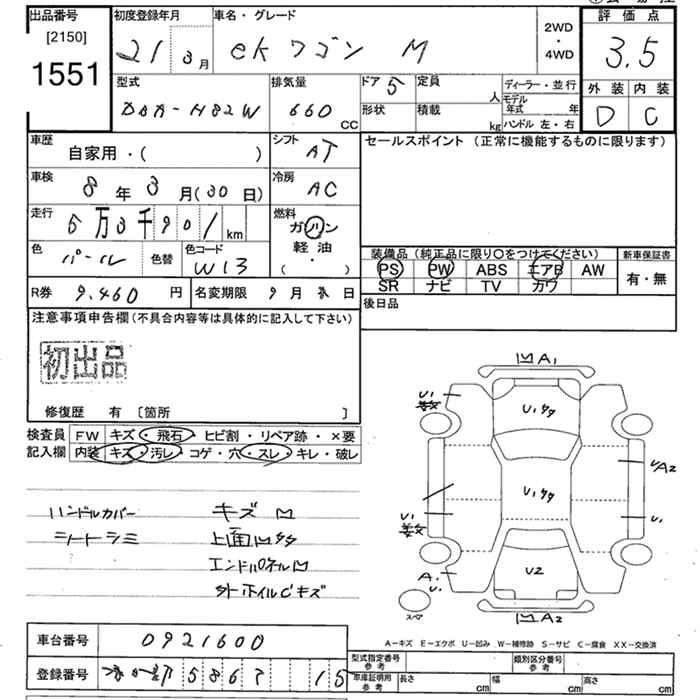 出品番号 初度登録年月 車名・グレード 2WD・4WD 評価点
[2150]
1551 21 3月 ekワゴン M 3.5
型式 排気量 ドア 5 定員 人 ディーラー・並行 外装 内装
DBA-H82W 660 CC 形状 積載 kg モデル年式 年 ハンドル 左・右 D C
車歴 自家用・( ) シフト AT セールスポイント (正常に機能するものに限ります)
車検 8年3月(30日) 冷房 AC
走行 5万3千901km 燃料 ガソリン 軽油 ( ・ )
色 パール 色替 色コード W13
装備品 (純正品に限り〇をつけてください) 新車保証書
PS PW ABS エアB AW 有・無
SR ナビ TV カワ
R券 9.460円 名変期限 9月 日 後日品
注意事項申告欄 (不具合内容等は具体的に記入して下さい)
初出品
修復歴 有 〔箇所 〕
検査員 FW キズ・飛石・ヒビ割・リペア跡・×要
記入欄 内装 キズ・汚レ・コゲ・穴・スレ・キレ・破レ
ハンドルカバー キズ M
シートシミ 上面
エンドパネル
外ホイルCキズ
A1
U1
U1
A2
U1
U1
U1
A
U1
U2
スペア
A2
車台番号 0921600
登録番号 5867 15
A-キズ E-エクボ U-凹み W-補修跡 S-サビ C-腐食 XX-交換済
型式指定番号 参考 類別区分番号 参考
車庫証明用 参考 長さ cm 幅 cm 高さ cm